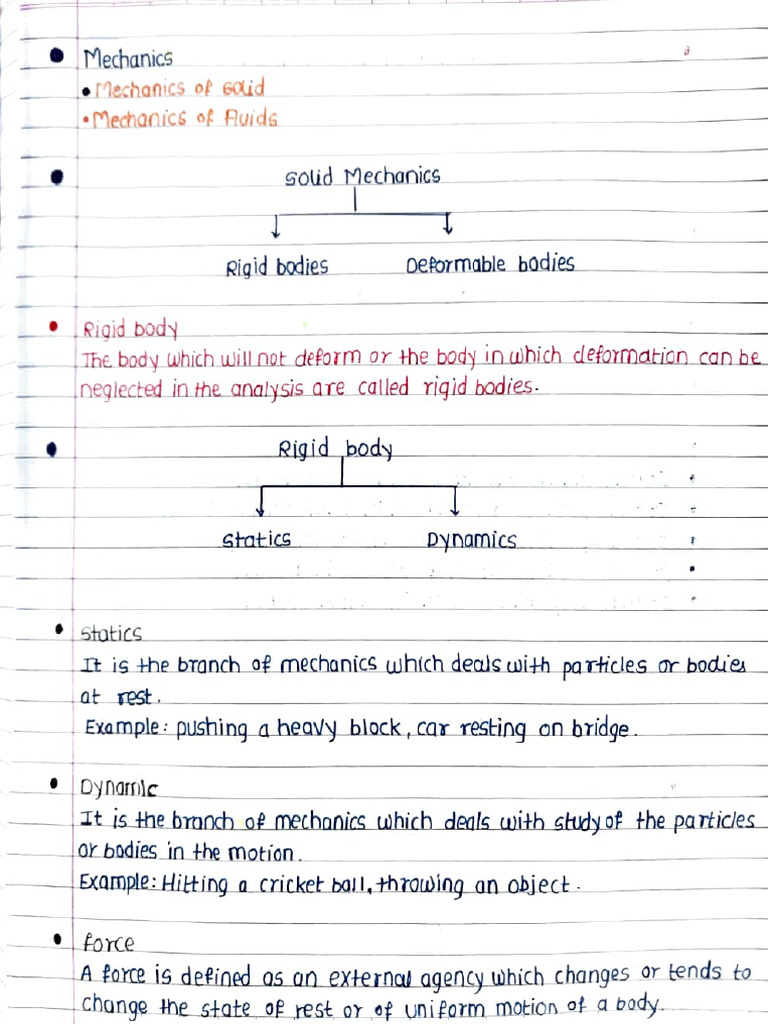 Mechanics
Mechanics of solid
Mechanics of fluids
Solid Mechanics
Rigid bodies Deformable bodies
Rigid body
The body which will not deform or the body in which deformation can be
neglected in the analysis are called rigid bodies.
Rigid body
Statics Dynamics
Statics
It is the branch of mechanics which deals with particles or bodies
at rest.
Example: pushing a heavy block, car resting on bridge.
Dynamic
It is the branch of mechanics which deals with study of the particles
or bodies in the motion.
Example: Hitting a cricket ball, throwing an object.
force
A force is defined as an external agency which changes or tends to
change the state of rest or of uniform motion of a body.